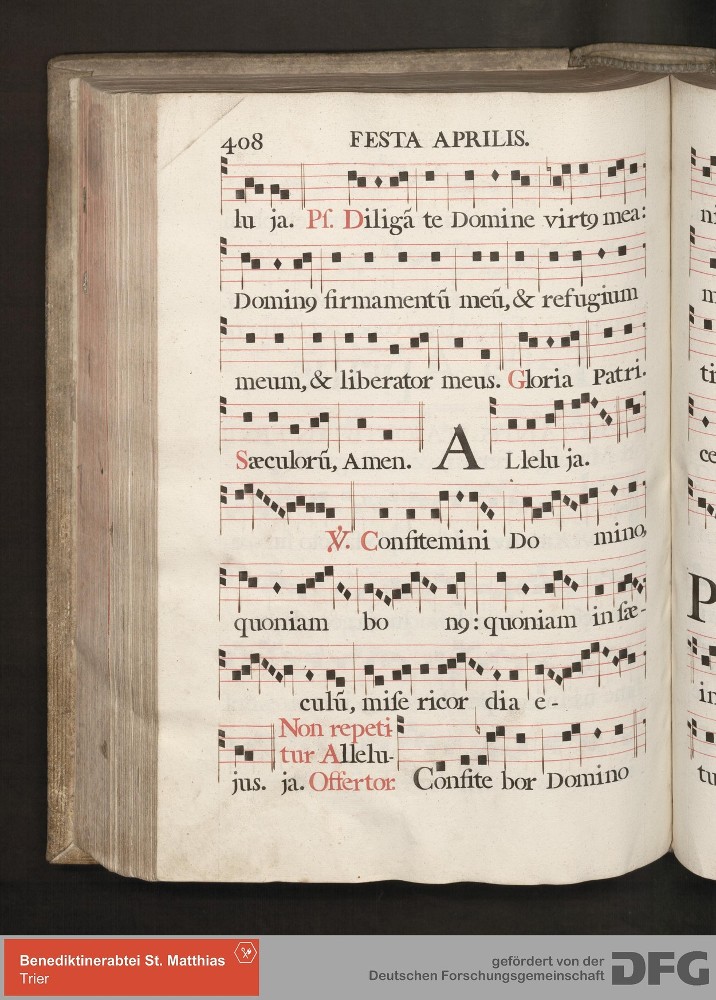 408 FESTA APRILIS.
lu ja. Ps. Diligã te Domine virtꝯ mea:
Dominꝯ firmamentũ meũ, & refugium
meum, & liberator meus. Gloria Patri.
Sæculorũ, Amen. ALlelu ja.
℣. Confitemini Do mino,
quoniam bo nꝯ: quoniam in sæ-
culũ, mise ricor dia e-
Non repeti-
tur Allelu-
jus. ja. Offertor. Confite bor Domino
ni
m
ti
ce
P
in
tu
Benediktinerabtei St. Matthias
Trier
gefördert von der
Deutschen Forschungsgemeinschaft DFG